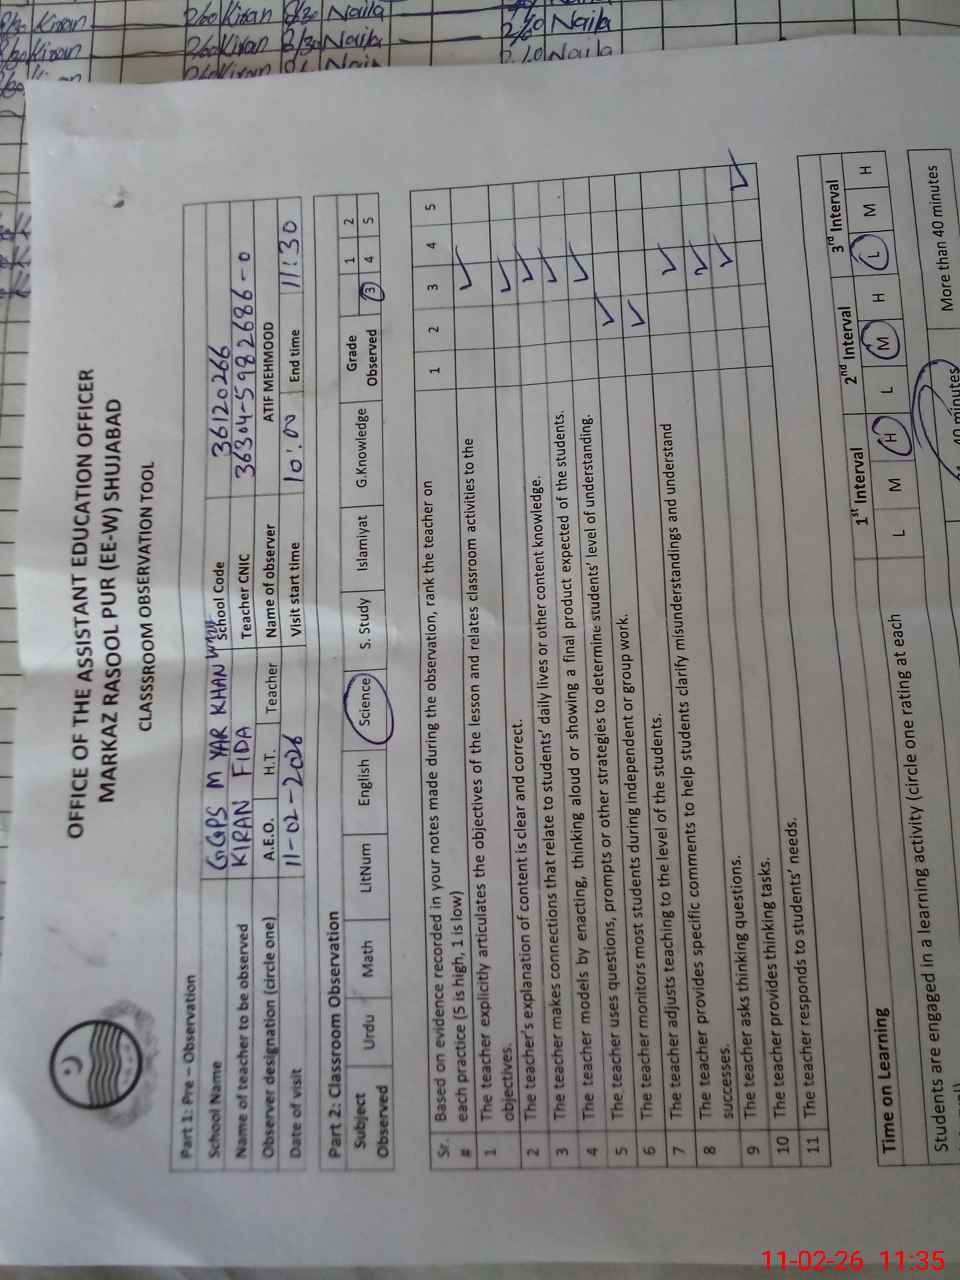 2/60 Kiran 2/30 Naila 2/10 Naila
2/60 Kiran 2/30 Naila 2/10 Naila
Kiran Naila
OFFICE OF THE ASSISTANT EDUCATION OFFICER
MARKAZ RASOOL PUR (EE-W) SHUJABAD
CLASSSROOM OBSERVATION TOOL
Part 1: Pre – Observation
School Name GGPS M YAR KHAN School Code 36120266
Name of teacher to be observed KIRAN FIDA Teacher CNIC 36304-5982686-0
Observer designation (circle one) A.E.O. H.T. Teacher Name of observer ATIF MEHMOOD
Date of visit 11-02-2026 Visit start time 10:00 End time 11:30
Part 2: Classroom Observation
Subject Observed Urdu Math LitNum English Science S. Study Islamiyat G.Knowledge Grade Observed 1 2 3 4 5
Sr. # Based on evidence recorded in your notes made during the observation, rank the teacher on each practice (5 is high, 1 is low) 1 2 3 4 5
1 The teacher explicitly articulates the objectives of the lesson and relates classroom activities to the objectives.
2 The teacher's explanation of content is clear and correct.
3 The teacher makes connections that relate to students' daily lives or other content knowledge.
4 The teacher models by enacting, thinking aloud or showing a final product expected of the students.
5 The teacher uses questions, prompts or other strategies to determine students' level of understanding.
6 The teacher monitors most students during independent or group work.
7 The teacher adjusts teaching to the level of the students.
8 The teacher provides specific comments to help students clarify misunderstandings and understand successes.
9 The teacher asks thinking questions.
10 The teacher provides thinking tasks.
11 The teacher responds to students' needs.
Time on Learning 1st Interval 2nd Interval 3rd Interval
Students are engaged in a learning activity (circle one rating at each L M H L M H L M H
40 minutes More than 40 minutes
11-02-26 11:35